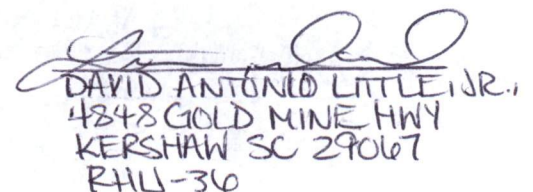 DAVID ANTONIO LITTLE, JR.,
4848 GOLD MINE HWY
KERSHAW SC 29067
RHU-36